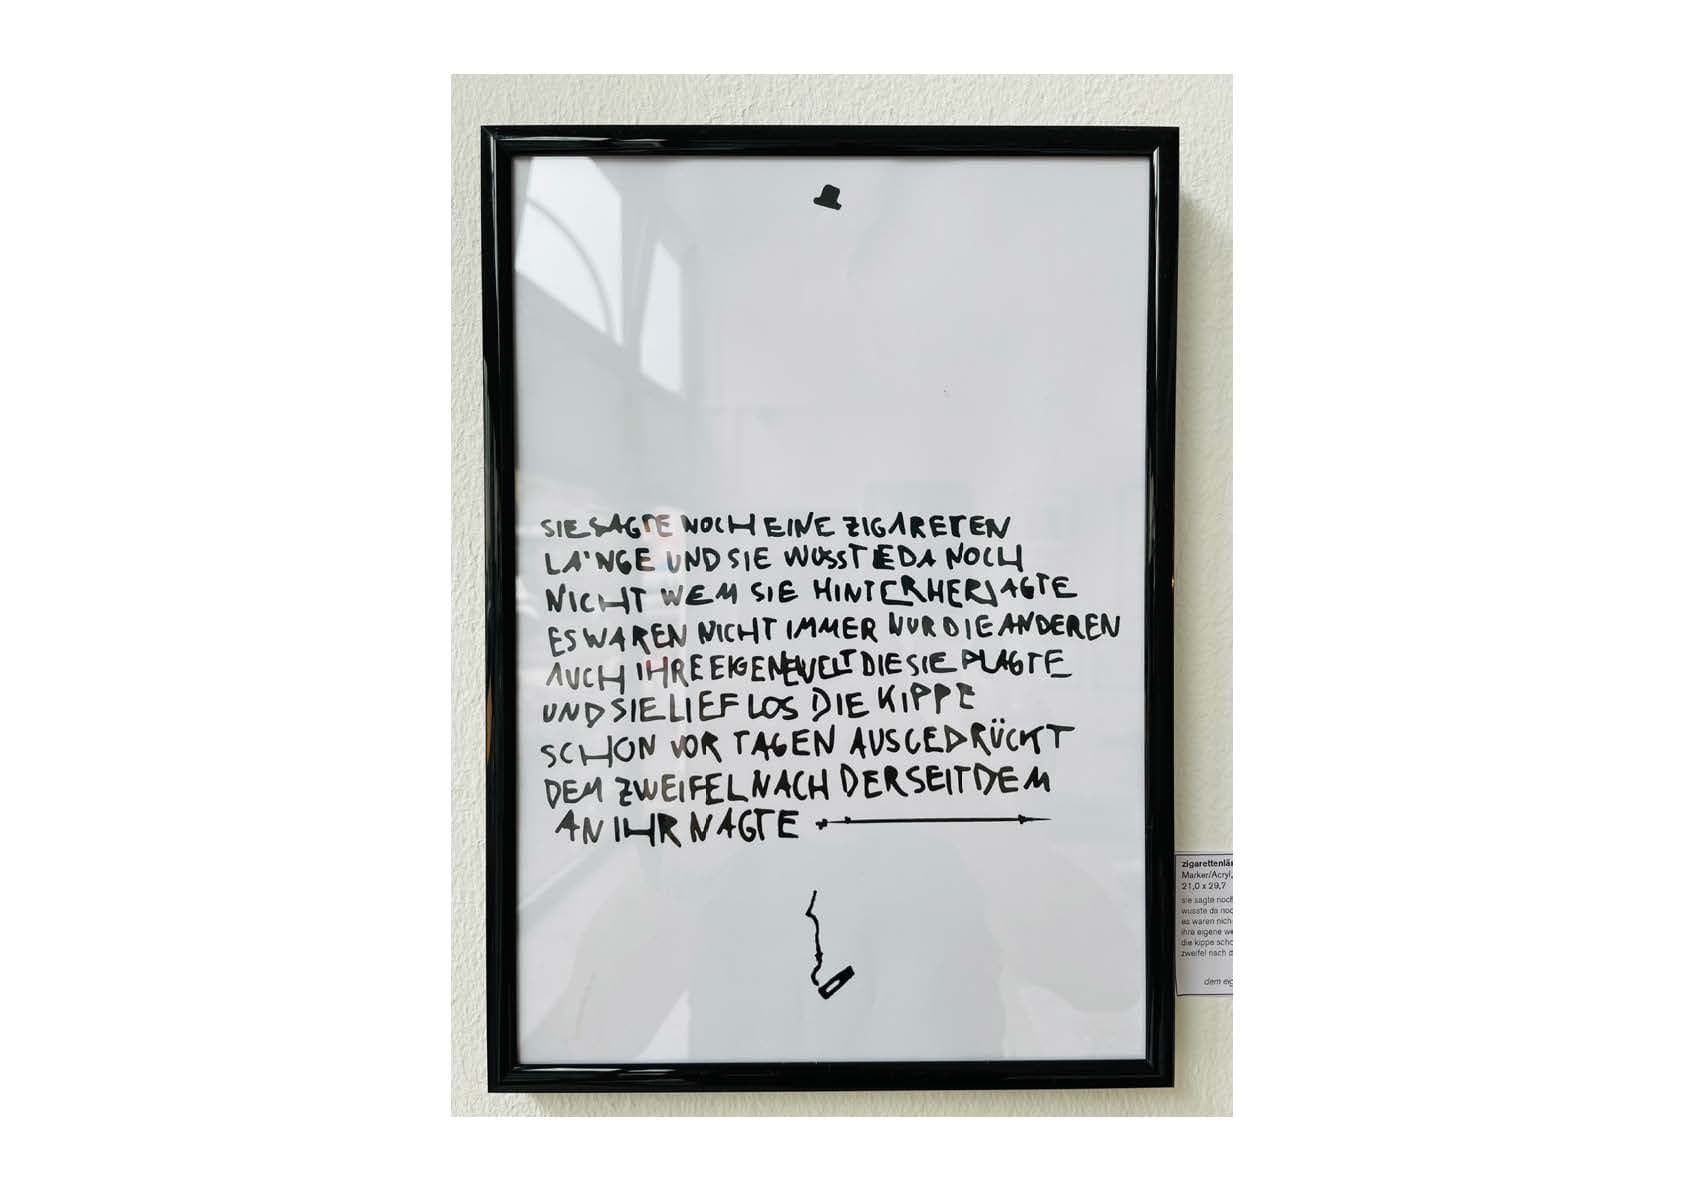 SIE SAGTE NOCH EINE ZIGARETEN
LÄNGE UND SIE WUSSTE DA NOCH
NICHT WEM SIE HINTERHERJAGTE
ES WAREN NICHT IMMER NUR DIE ANDEREN
AUCH IHRE EIGENE WELT DIE SIE PLAGTE
UND SIE LIEF LOS DIE KIPPE
SCHON VOR TAGEN AUSGEDRÜCKT
DEM ZWEIFEL NACH DER SEITDEM
AN IHR NAGTE
zigarettenlä
Marker/Acryl,
21,0 x 29,7
sie sagte noch
wusste da noc
es waren nich
ihre eigene we
die kippe scho
zweifel nach d
dem eig